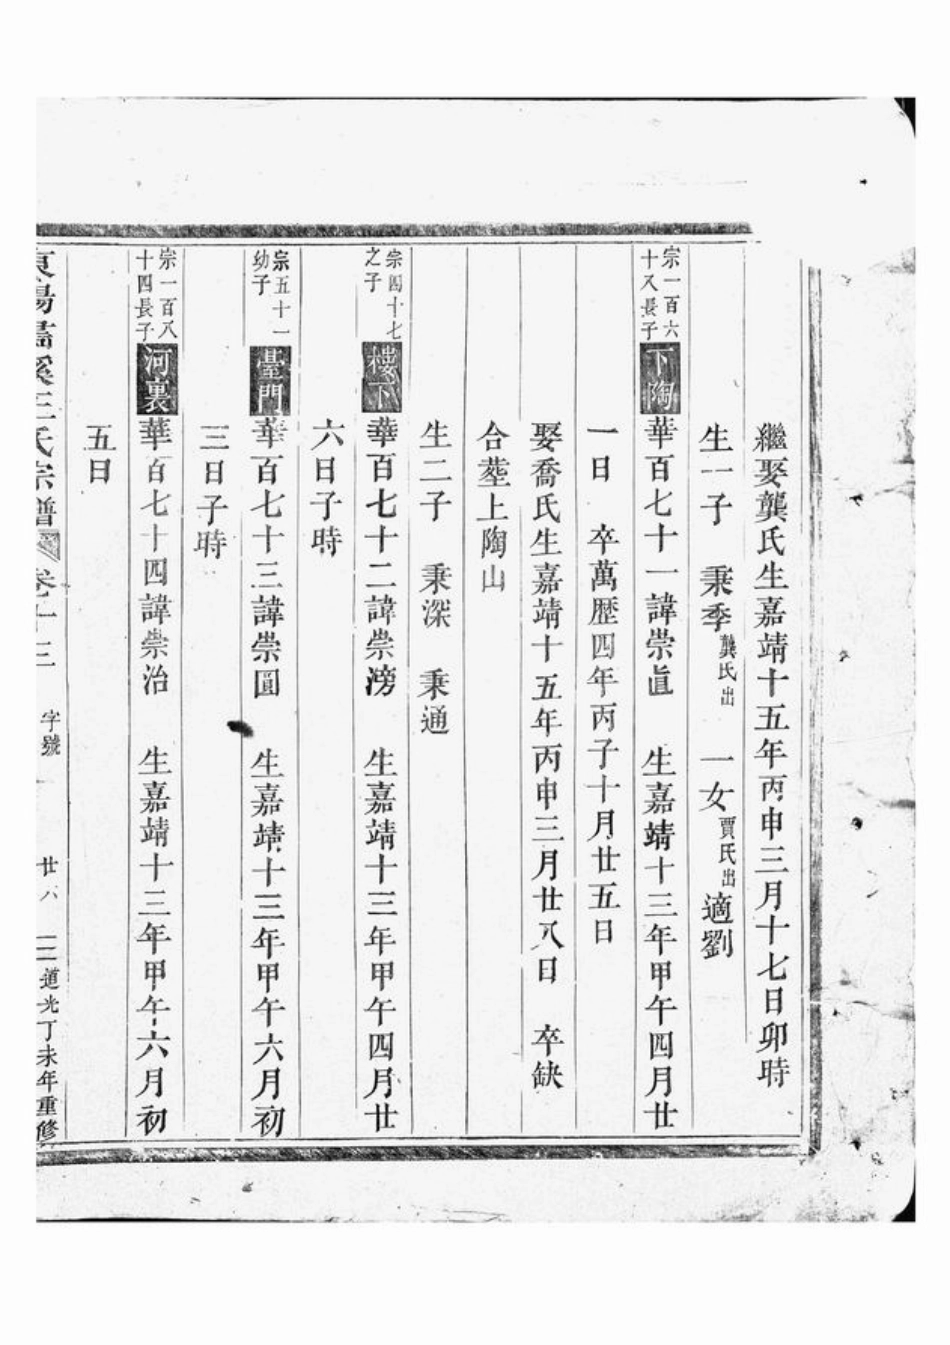 繼娶龔氏生嘉靖十五年丙申三月十七日卯時
生一子 秉季龔氏出 一女賈氏出適劉
宗一百六十八長子 下陶 華百七十一諱崇眞 生嘉靖十三年甲午四月廿
一日 卒萬歷四年丙子十月廿五日
娶喬氏生嘉靖十五年丙申三月廿八日 卒缺
合塟上陶山
生二子 秉深 秉通
宗四十七之子 樓下 華百七十二諱崇滂 生嘉靖十三年甲午四月廿
六日子時
宗五十一幼子 臺門 華百七十三諱崇圓 生嘉靖十三年甲午六月初
三日子時
宗一百八十四長子 河裏 華百七十四諱崇治 生嘉靖十三年甲午六月初
五日
東陽 王氏宗譜 卷十三 字號 廿八 道光丁未年重修